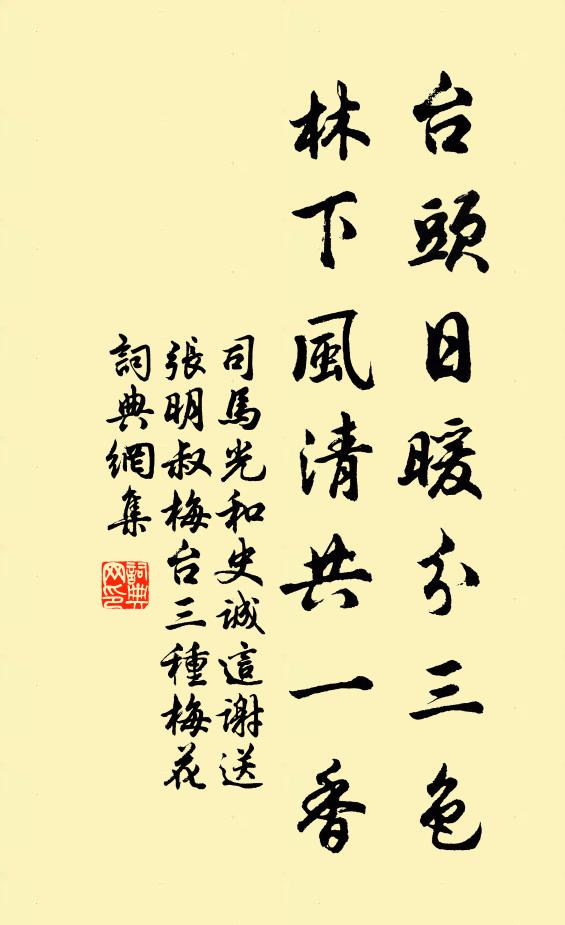 台頭日暖分三色
林下風清共一香
司馬光和史誠這謝送
張明叔梅台三種梅花
詞典網集
詞典網印